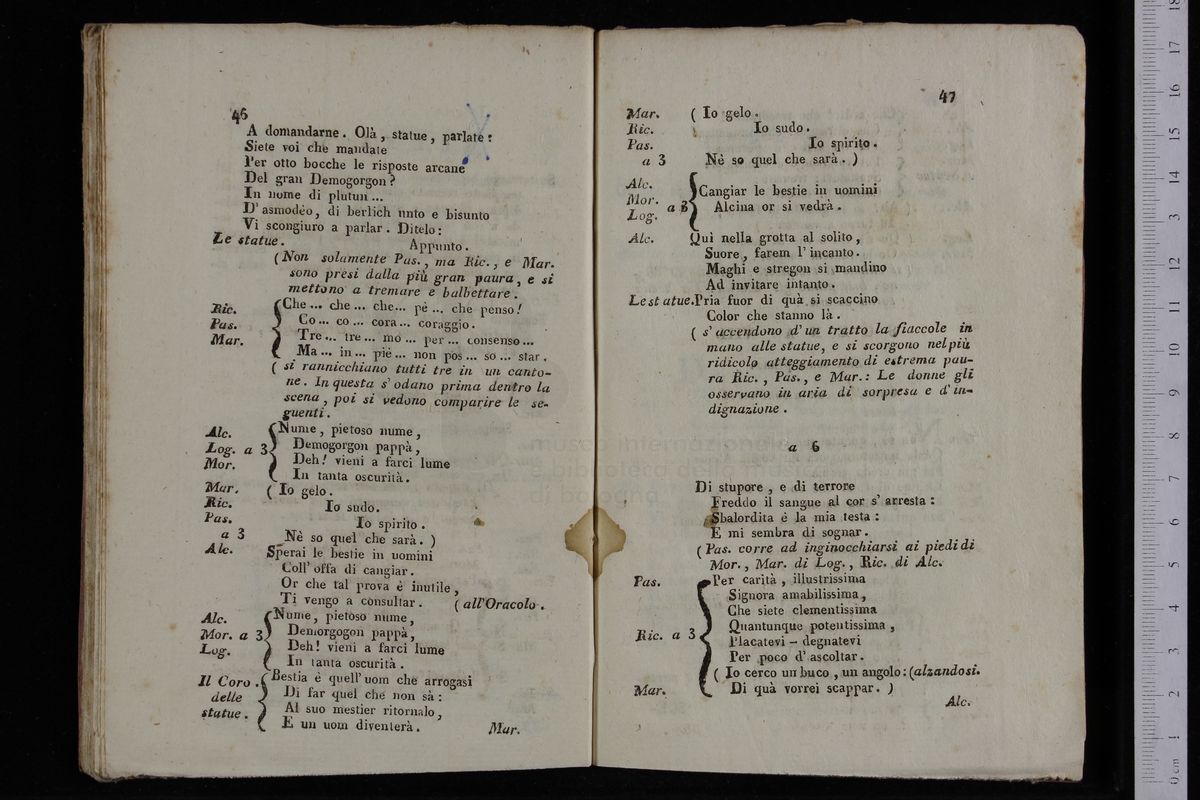 46
A domandarne. Olà, statue, parlate:
Siete voi che mandate
Per otto bocche le risposte arcane
Del gran Demogorgon?
In nome di plutun...
D'asmodèo, di berlich unto e bisunto
Vi scongiuro a parlar. Ditelo:
Le statue. Appunto.
(Non solamente Pas., ma Ric., e Mar.
sono presi dalla più gran paura, e si
mettono a tremare e balbettare.
Ric. Che... che... che... pè... che penso!
Pas. Co... co... cora... coraggio.
Mar. Tre... tre... mo... per... consenso...
Ma... in... piè... non pos... so... star.
(si rannicchiano tutti tre in un canto-
ne. In questa s'odano prima dentro la
scena, poi si vedono comparire le se-
guenti.
Alc. Nume, pietoso nume,
Log. a 3 Demogorgon pappà,
Mor. Deh! vieni a farci lume
In tanta oscurità.
Mar. (Io gelo.
Ric. Io sudo.
Pas. Io spirito.
a 3 Nè so quel che sarà.)
Alc. Sperai le bestie in uomini
Coll'offa di cangiar.
Or che tal prova è inutile,
Ti vengo a consultar. (all'Oracolo.
Alc. Nume, pietoso nume,
Mor. a 3 Demorgogon pappà,
Log. Deh! vieni a farci lume
In tanta oscurità.
Il Coro. Bestia è quell'uom che arrogasi
delle Di far quel che non sà:
statue. Al suo mestier ritornalo,
E un uom diventerà.
Mar.
47
Mar. (Io gelo.
Ric. Io sudo.
Pas. Io spirito.
a 3 Nè so quel che sarà.)
Alc. Cangiar le bestie in uomini
Mor. a 3 Alcina or si vedrà.
Log.
Alc. Quì nella grotta al solito,
Suore, farem l'incanto.
Maghi e stregon si mandino
Ad invitare intanto.
Le st atue. Pria fuor di quà si scaccino
Color che stanno là.
(s'accendono d'un tratto la fiaccole in
mano alle statue, e si scorgono nel più
ridicolo atteggiamento di estrema pau-
ra Ric., Pas., e Mar.: Le donne gli
osservano in aria di sorpresa e d'in-
dignazione.
a 6
Di stupore, e di terrore
Freddo il sangue al cor s'arresta:
Sbalordita è la mia testa:
E mi sembra di sognar.
(Pas. corre ad inginocchiarsi ai piedi di
Mor., Mar. di Log., Ric. di Alc.
Pas. Per carità, illustrissima
Signora amabilissima,
Che siete clementissima
Quantunque potentissima,
Ric. a 3 Placatevi - degnatevi
Per poco d'ascoltar.
(Io cerco un buco, un angolo: (alzandosi.
Mar. Di quà vorrei scappar.)
Alc.
museo internazionale
e biblioteca della musica
di bologna